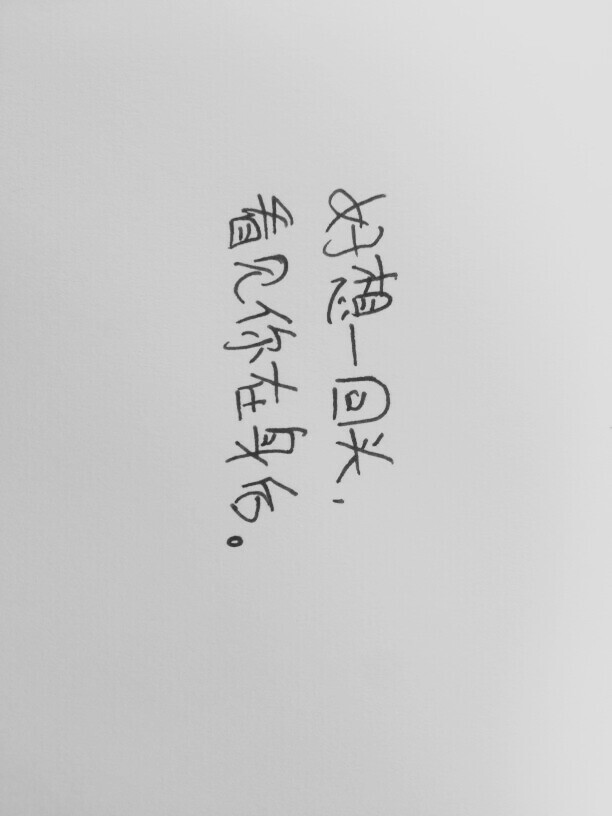 好想一回头，
看见你在身后。